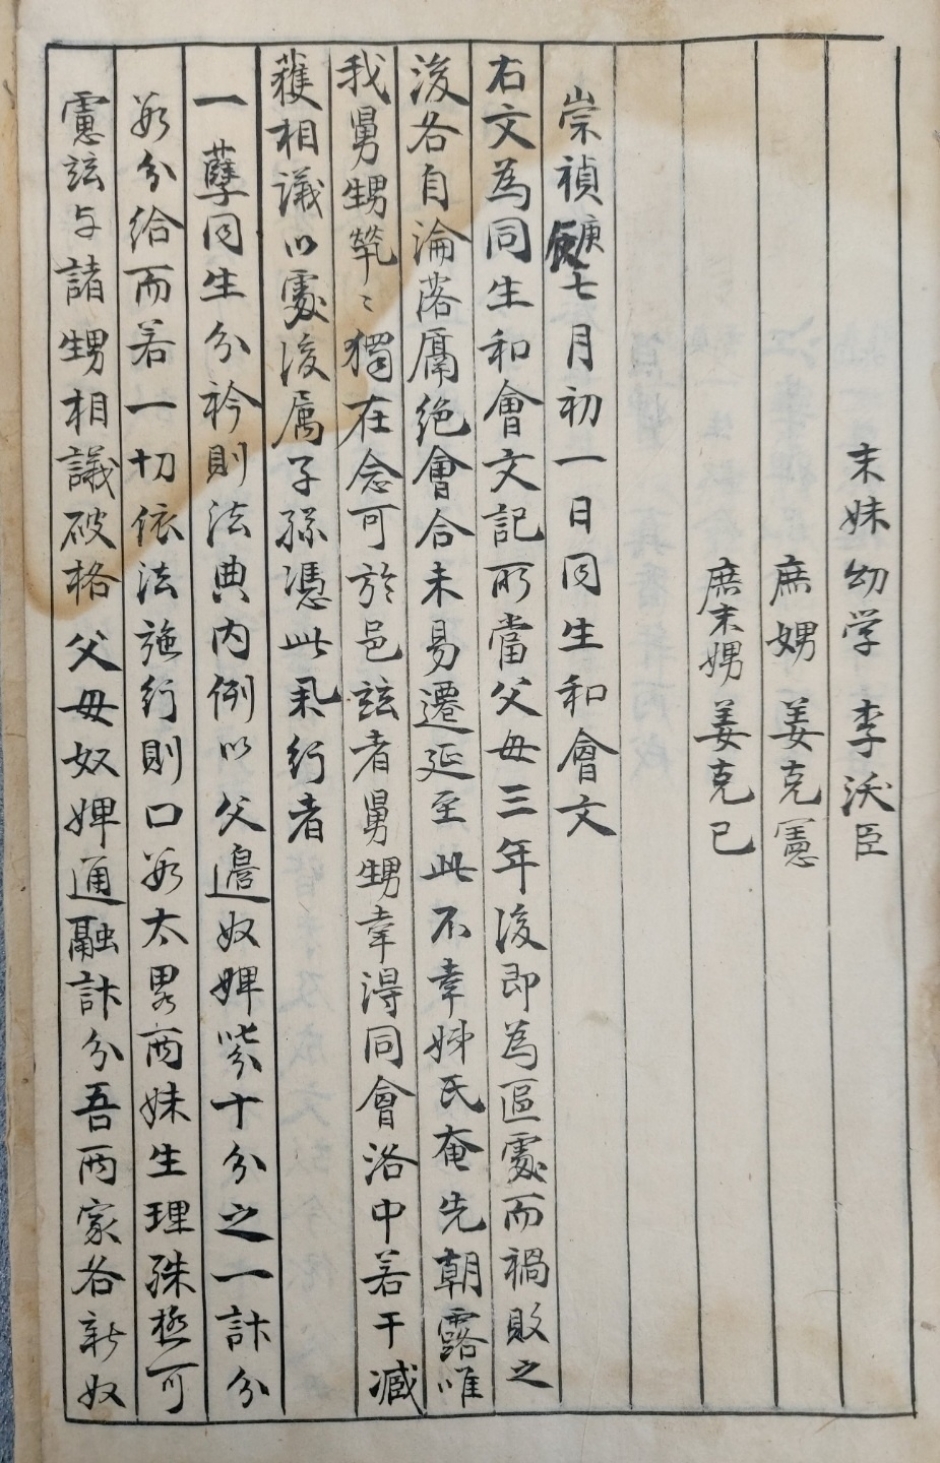 末妹幼学 李沃臣
庶娚 姜克憲
庶末娚 姜克已
崇禎庚辰七月初一日同生和會文
右文為同生和會文記所當父母三年後即為區處而禍敗之
後各自淪落屬絶會合未易遷延至此不幸姊氏奄先朝露唯
我舅甥煢〻獨在念可於邑玆者舅甥幸得同會洛中若干臧
獲相議以處後属子孫憑此輒行者
一 孽同生分衿則法典内例以父邊奴婢柴十分之一計分
如分給而若一切依法施行則口数太畧両妹生理殊極可
慮玆与諸甥相議破格父母奴婢通融計分吾両家各新奴